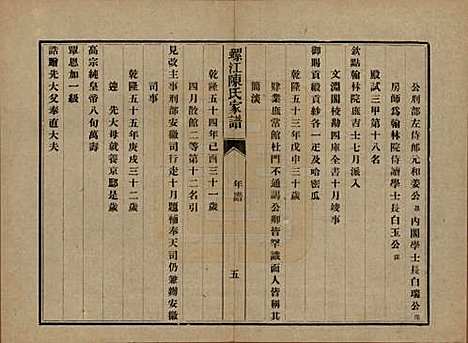 公刑部左侍郎元和姜公晟內閣學士長白瑞公
房師爲翰林院侍讀學士長白玉公
殿試三甲第十八名
欽點翰林院庶吉士七月派入
文淵閣校勘四庫全書十月竣事
御賜貢緞紗各一疋及哈密瓜
乾隆五十三年戊申三十歲
肄業庶常館杜門不通謁公卿皆罕識面人皆稱其
簡淡
螺江陳氏家譜
年譜
五
乾隆五十四年己酉三十一歲
四月散館二等第十二名引
見改主事刑部安徽司行走十月題補奉天司仍兼辦安徽
司事
乾隆五十五年庚戌三十二歲
迎先大母就養京邸是歲
高宗純皇帝八旬萬壽
覃恩加一級
誥贈先大父奉直大夫